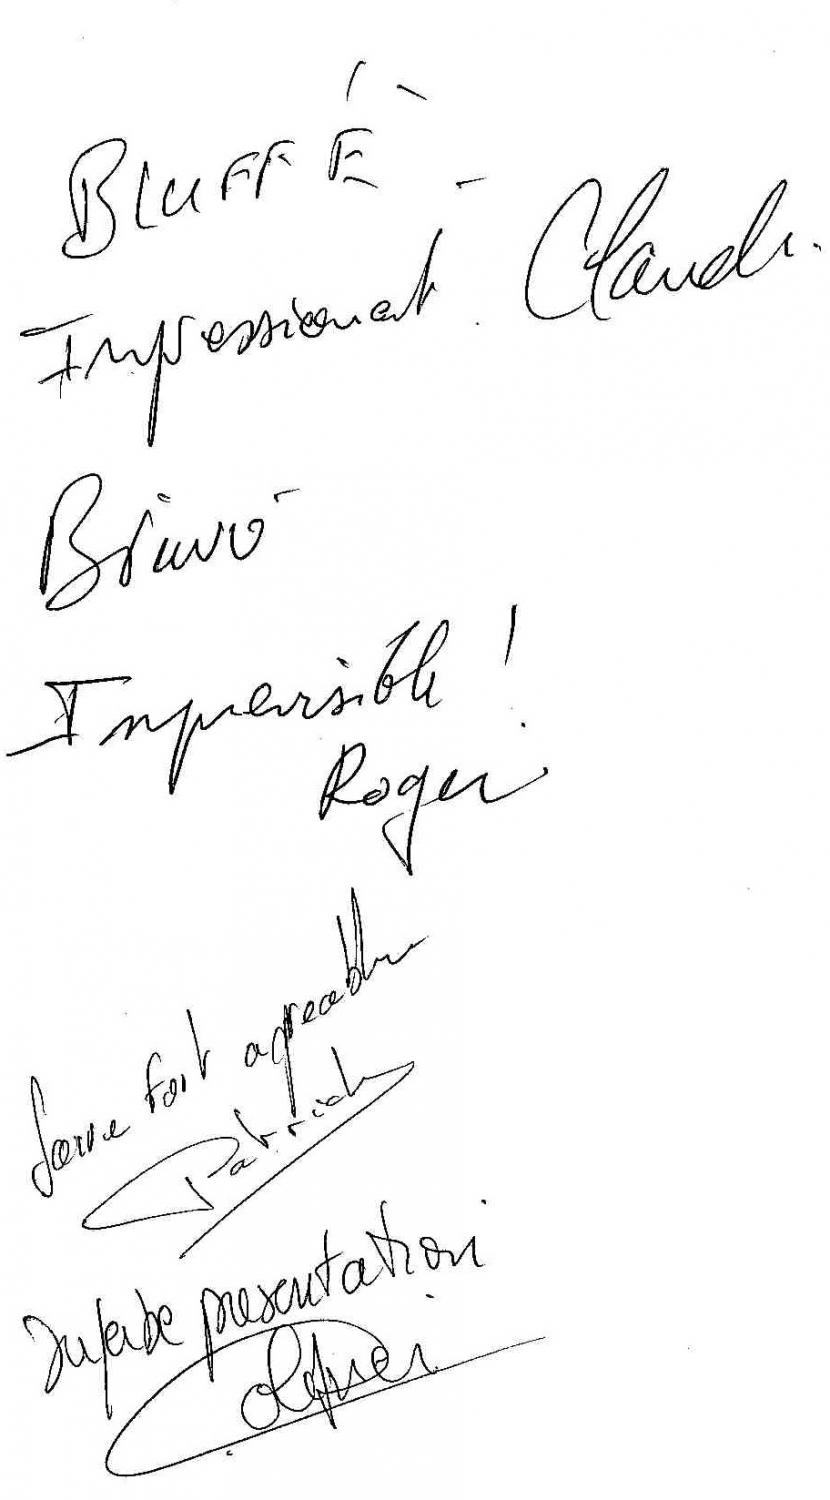 BLUFFÉ -
Impressionant. Claude.
Bravo
Imprevisible !
Roger
Soirée fort agreable
Patrick
Superbe presentation